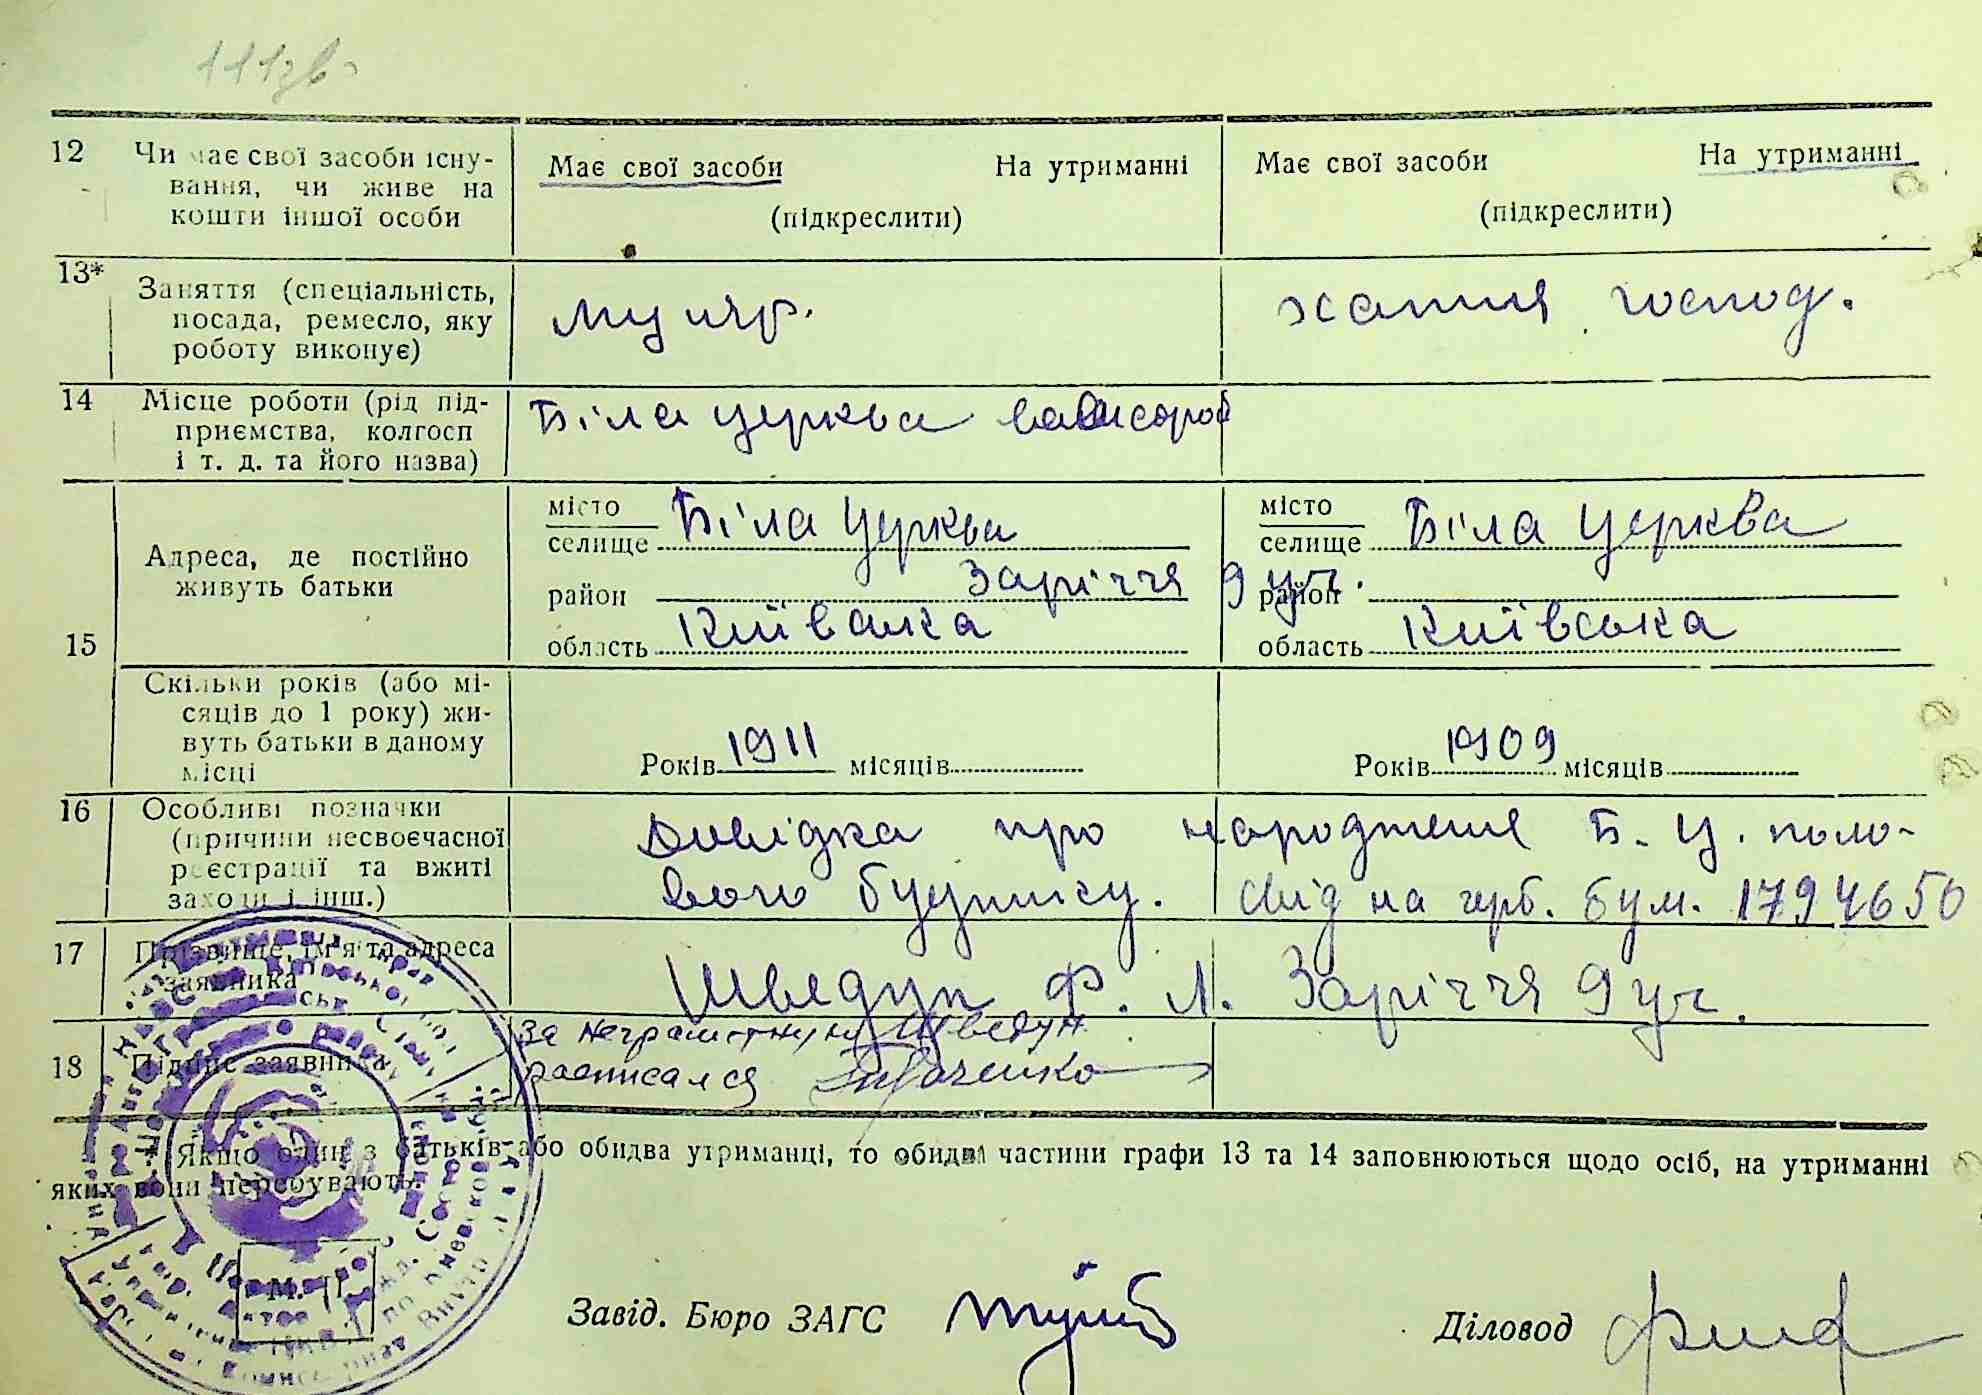 111зв
12 Чи має свої засоби існу-
вання, чи живе на
кошти іншої особи
Має свої засоби На утриманні
(підкреслити)
Має свої засоби На утриманні
(підкреслити)
13* Заняття (спеціальність,
посада, ремесло, яку
роботу виконує)
муляр.
хатня господ.
14 Місце роботи (рід під-
приємства, колгосп
і т. д. та його назва)
Біла церква
15 Адреса, де постійно
живуть батьки
місто
селище Біла церква
район Заріччя 9 уч.
область Київська
місто
селище Біла церква
район
область Київська
Скільки років (або мі-
сяців до 1 року) жи-
вуть батьки в даному
місці
Років 1911 місяців
Років 1909 місяців
16 Особливі позначки
(причини несвоєчасної
реєстрації та вжиті
заходи і інш.)
Довідка про народження Б. Ц. поло-
вого будинку. Свід на герб. бум. 1794650
17 Прізвище, ім'я та адреса
заявника
Шведун Ф. Л. Заріччя 9 уч.
18 Підпис заявника
За неграмотную Шведун
расписался
* Якщо один з батьків або обидва утриманці, то обидві частини графи 13 та 14 заповнюються щодо осіб, на утриманні
яких вони перебувають.
М. П.
Завід. Бюро ЗАГС
Діловод